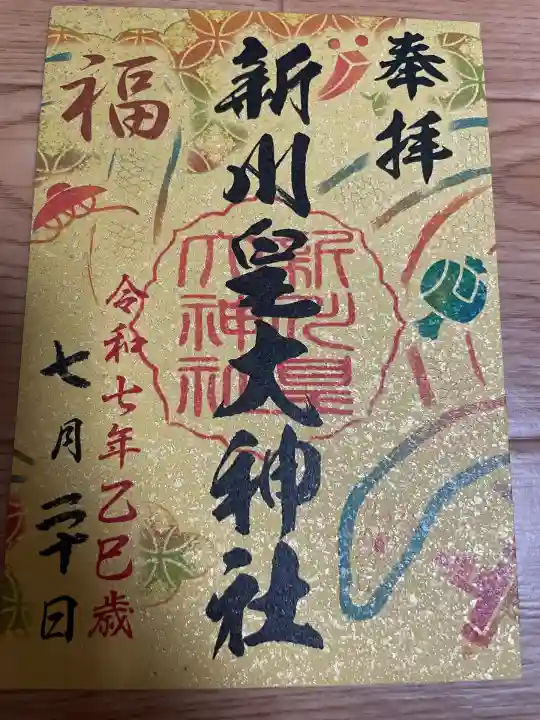 奉拝
新川皇大神社
新川皇大神社
福
令和七年乙巳歳
七月二十日